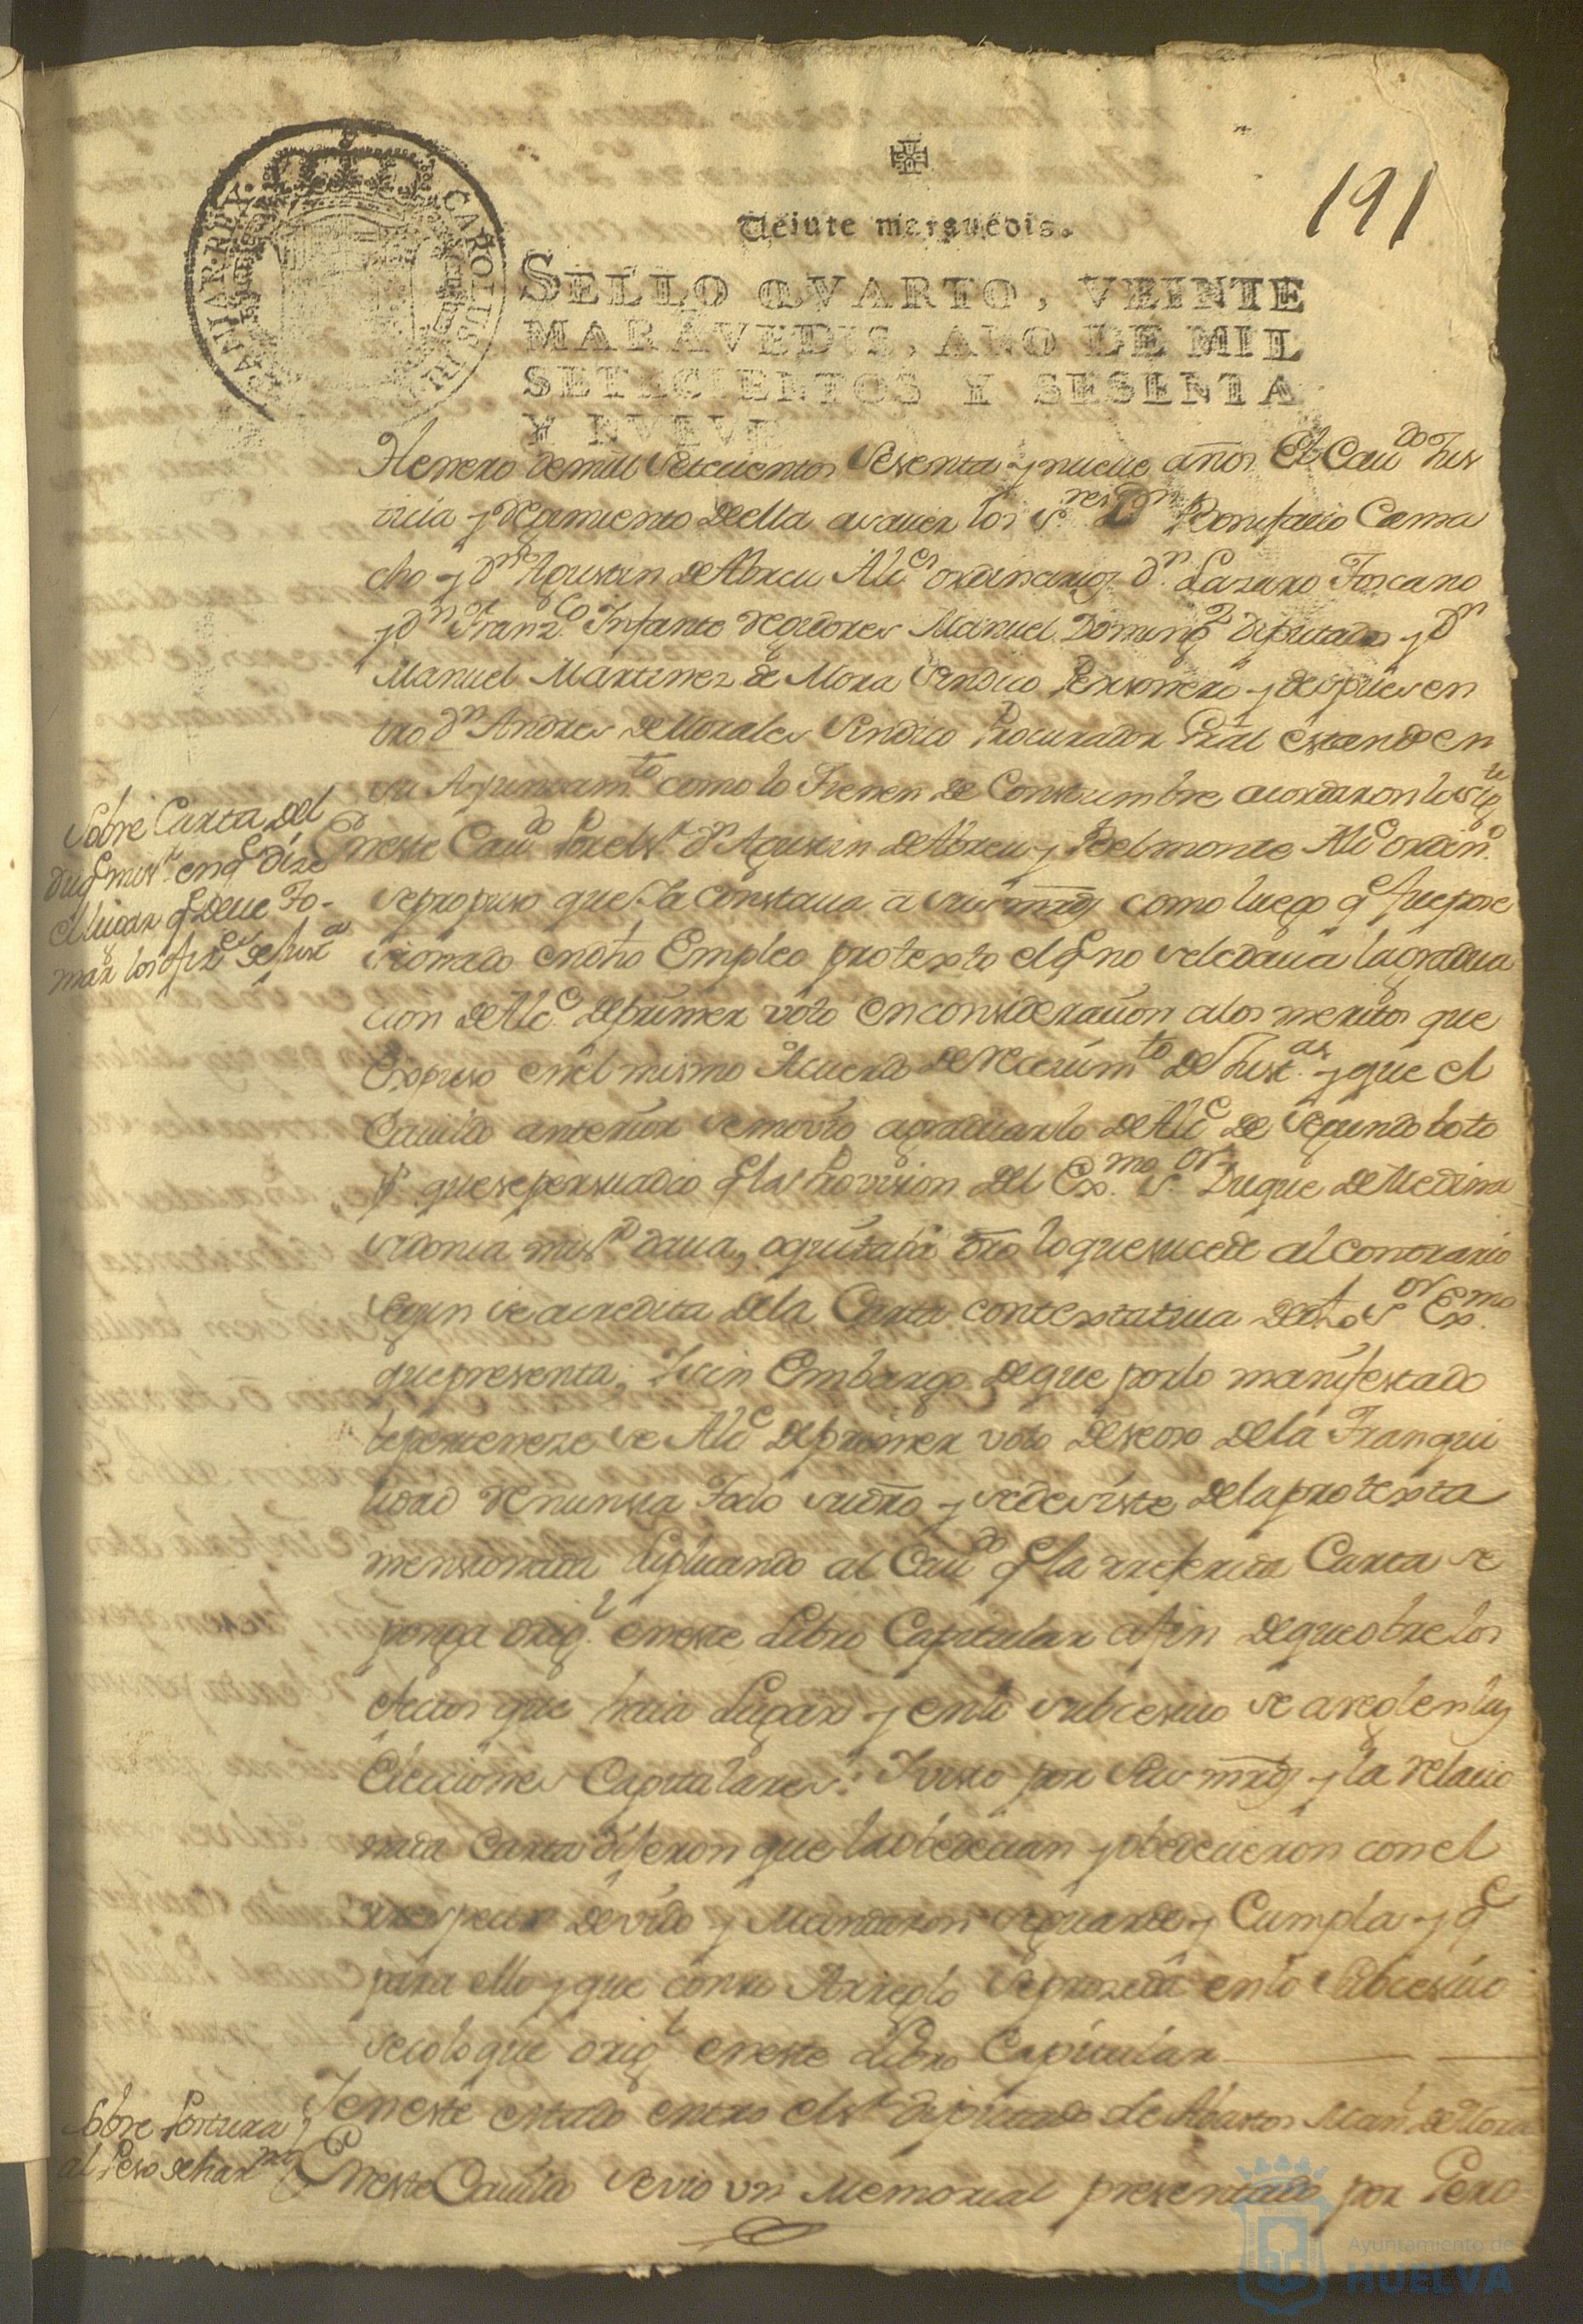 191
Veinte maravedis.
CAROLUS III
SELLO QVARTO, VEINTE
MARAVEDIS, AÑO DE MIL
SETECIENTOS Y SESENTA
Y NVEVE
Henero de mill Setecientos Sesenta y nueue años El Cauᵈᵒ Jus
ticia y Regimiento de ella a sauer los Sʳᵉˢ Dⁿ Bonifacio Cama
cho y Dⁿ Agustin de Abreu Alcᵉˢ ordinarios Dⁿ Lazaro Toscano
y Dⁿ Franzᶜᵒ Infante Regidores Manuel Domingᶻ Diputado y Dⁿ
Manuel Martinez de Mora Sindico Personero y despues en
tro Dⁿ Andres de Morales Sindico Procurador Gràl estando en
su Ayuntamᵗᵒ como lo tienen de Constumbre acordaron lo sigᵗᵉ
Sobre Carta del
Duqᵉ mi Sʳ en qᵉ dize
el lugar qᵉ deue to-
mar los Ofizᵉˢ de Justᵃˢ
En este Cauᵈᵒ Por el Sʳ Dⁿ Agustin de Abreu y Belmonte Alcᵉ ordinᵒ
se propuso que la Constaua a sus mrds como luego qᵉ fue pose
sionado en dho Empleo protexto el qᵉ no se le daua la gradua
cion de Alcᵉ de primer voto en consideracion a los meritos que
Expuso en el mismo Acuerdo de Reciuimᵗᵒ de Justᵃˢ y que el
Cauildo anterior se movio a graduarlo de Alcᵉ de Segundo boto
pʳ que se persuadio qᵉ la Provision del Exᵐᵒ Sᵒʳ Duque de Medina
sidonia mi Sʳ daua, o quitaua dro lo que sucede al contrario
segun se acredita de la Carta contextatiua de dho Sᵒʳ Exᵐᵒ
que presenta; Y sin Embargo de que por lo manifestado
le perteneze se Alcᵉ de primer voto deseoso de la Tranqui
lidad Renunsia todo su dro y se desiste de la protexta
mensionada Suplicando al Cauᵈᵒ qᵉ la rreferida Carta se
ponga origˡ en este Libro Capitular a fin de que obre los
efectos que haia Lugar y en lo subcesiuo se areglen las
Elecciones Capitulares: Y visto por Sus mrds y la relacio
nada Carta dijeron que la obedecian y obedecieron con el
rrespecto devido y Mandaron se guarde y Cumpla y qᵉ
para ello y que con su Arreglo se prozeda en lo Subcesiuo
se coloque origˡ en este Libro Capitular
Y en este estado entro el Sʳ diputado de Abastos Manˡ de Mora
Sobre Postura
al Peso de harⁿᵃ
En este Cauildo se vio un Memorial presentado por Pero
Ayuntamiento de
HUELVA